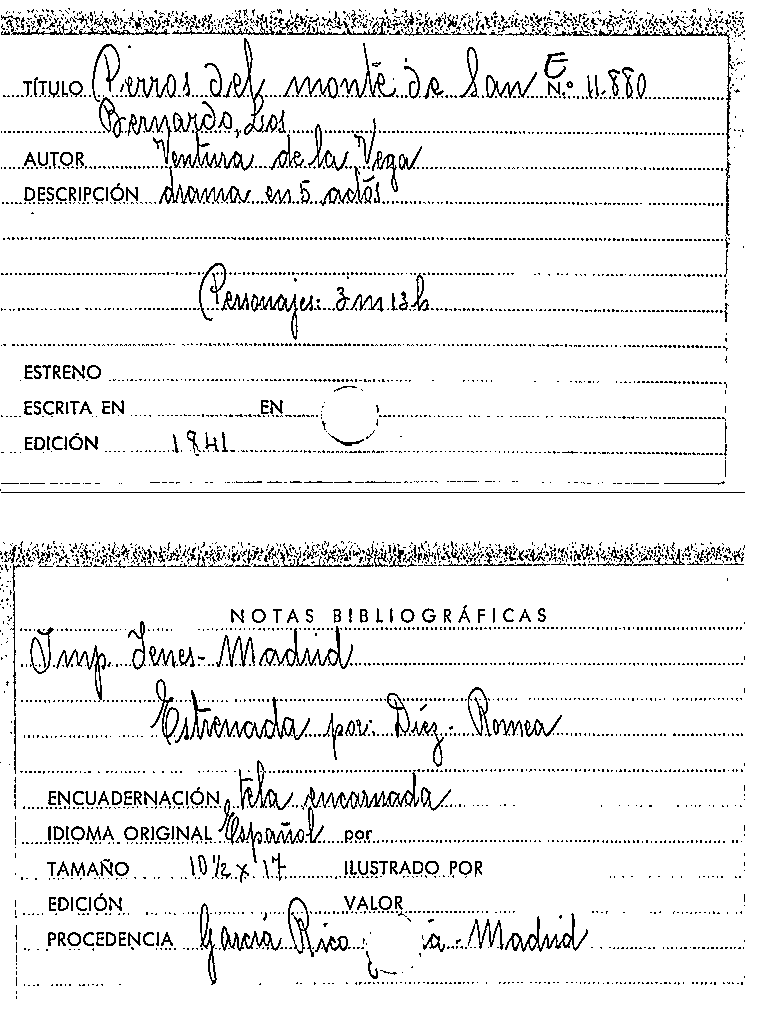 TÍTULO Perros del monte de San E N.º 11.880
Bernardo, Los
AUTOR Ventura de la Vega
DESCRIPCIÓN drama en 5 actos
Personajes: 3 m 13 h
ESTRENO
ESCRITA EN EN
EDICIÓN 1841
NOTAS BIBLIOGRÁFICAS
Imp. Yenes - Madrid
Estrenada por: Díez - Romea
ENCUADERNACIÓN tela encarnada
IDIOMA ORIGINAL Español por
TAMAÑO 10 1/2 x 17 ILUSTRADO POR
EDICIÓN VALOR
PROCEDENCIA García Rico ía - Madrid